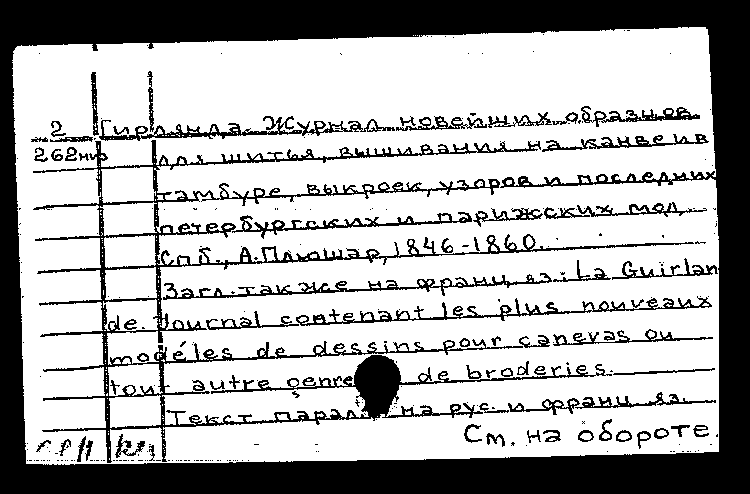 2 Гирлянда. Журнал новейших образцов
262нир для шитья, вышивания на канве и в
тамбуре, выкроек, узоров и последних
петербургских и парижских мод.
Спб., А. Плюшар, 1846-1860.
Загл. также на франц. яз.: La Guirlan
de. Journal contenant les plus nouveaux
modéles de dessins pour canevas ou
tout autre genre de broderies.
Текст парал. на рус. и франц. яз.
См. на обороте.